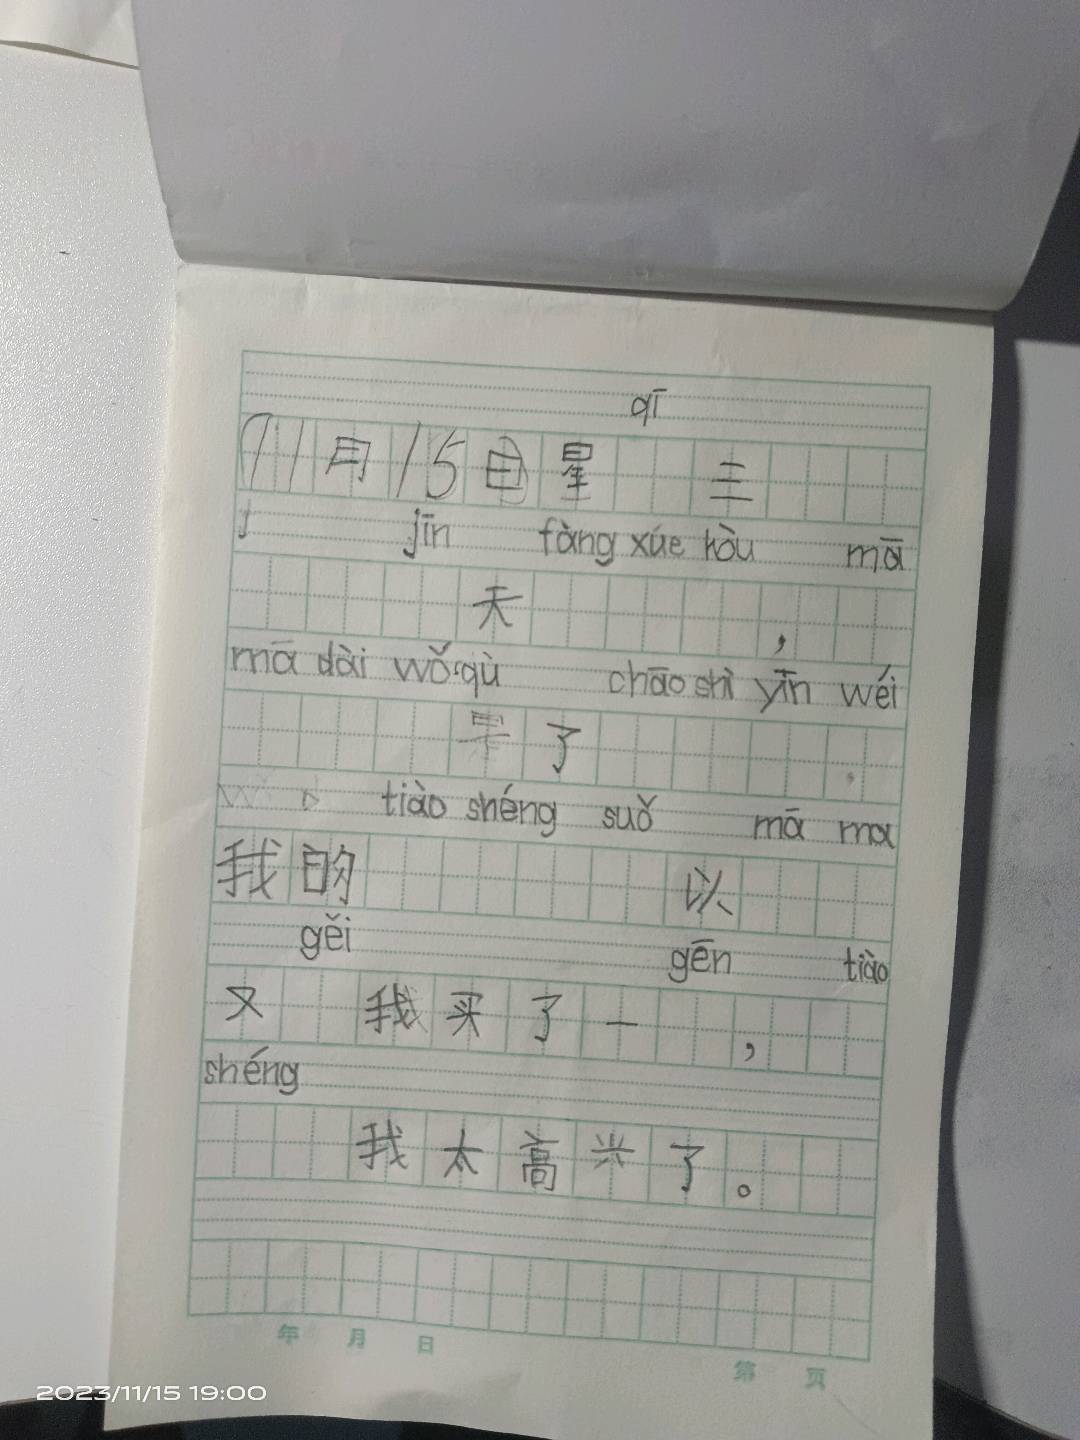 qī
11月15日星 三
jīn fàng xúe hòu mā
天 ，
mā dài wǒ qù chāo shì yīn wéi
了
tiào shéng suǒ mā ma
我的 以
gěi gēn tiào
又 我买了一 ，
shéng
我太高兴了。
年 月 日
第 页
2023/11/15 19:00